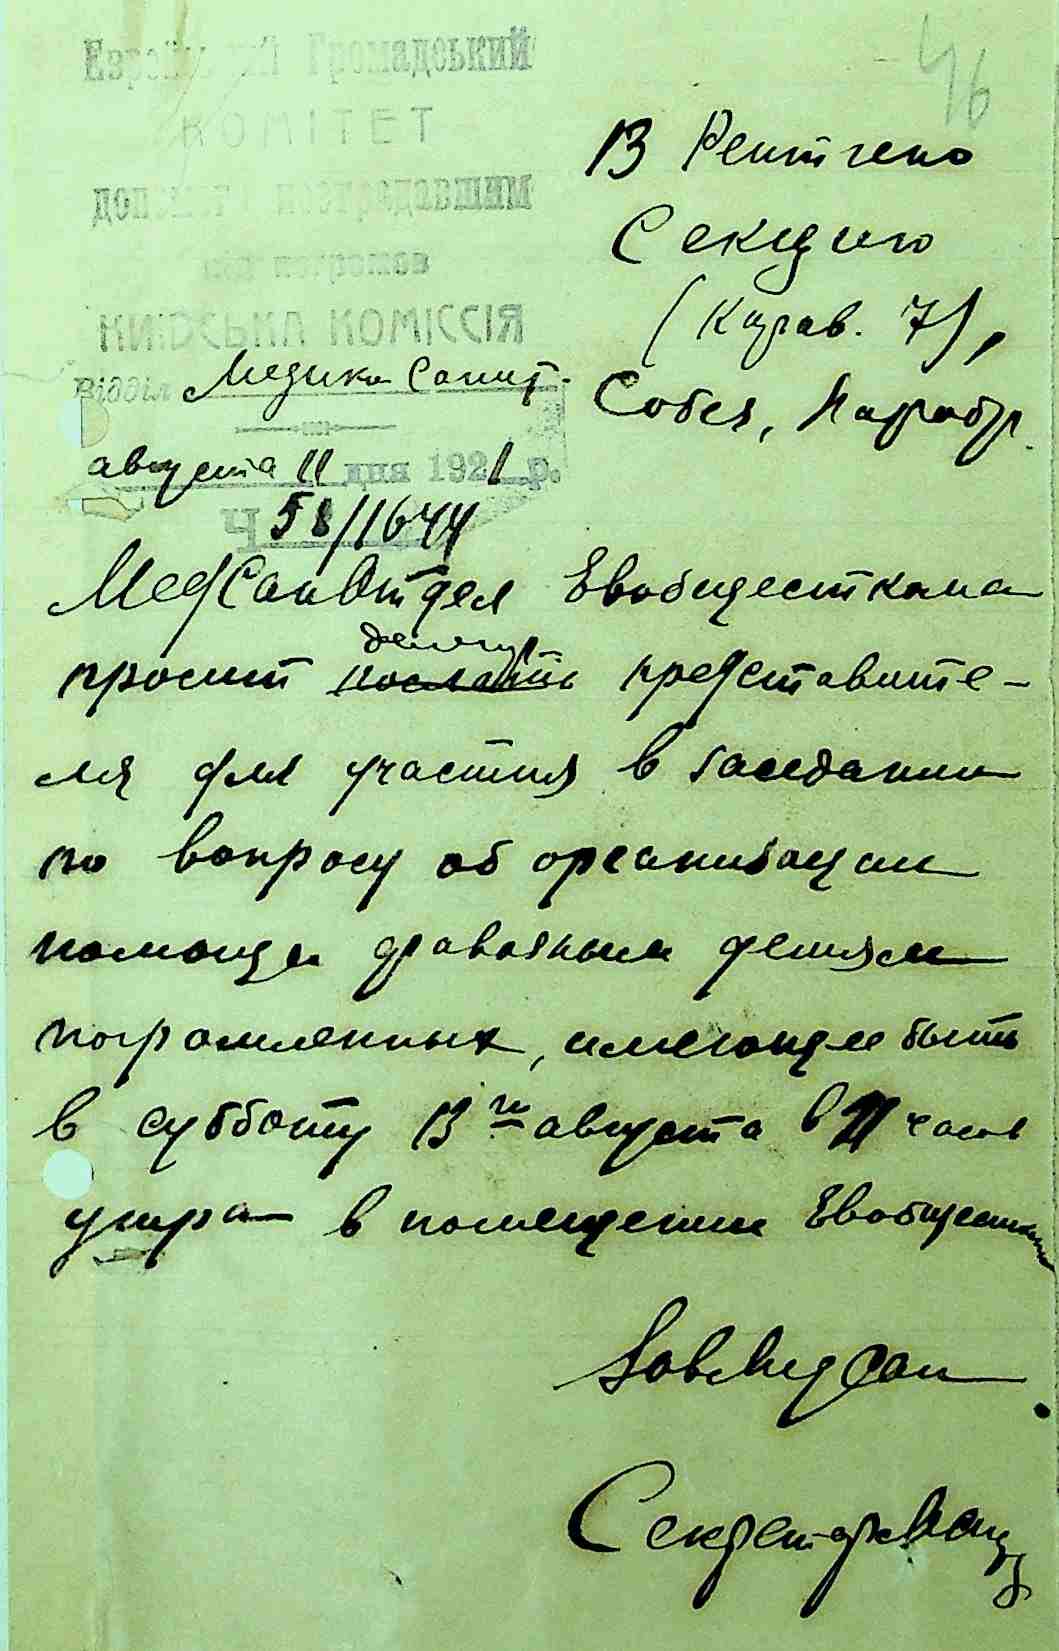 46
Еврейський Громадський
КОМІТЕТ
допомоги пострадавшим
од погромов
КИЇВСЬКА КОМІССІЯ
Відділ Медико Санит.
августа 11 дня 1921 р.
Ч 58/1644
В Рентгено
Секцию
(Карав. 7),
Собез,
МедСанОтдел Евобщесткома
просит послать представите-
ля для участия в заседании
по вопросу об организации
помощи детям
погромленных, имеющем быть
в субботу 13го августа в 11 часов
утра в помещении Евобщесткома
ЗавМедСан
Секретарь